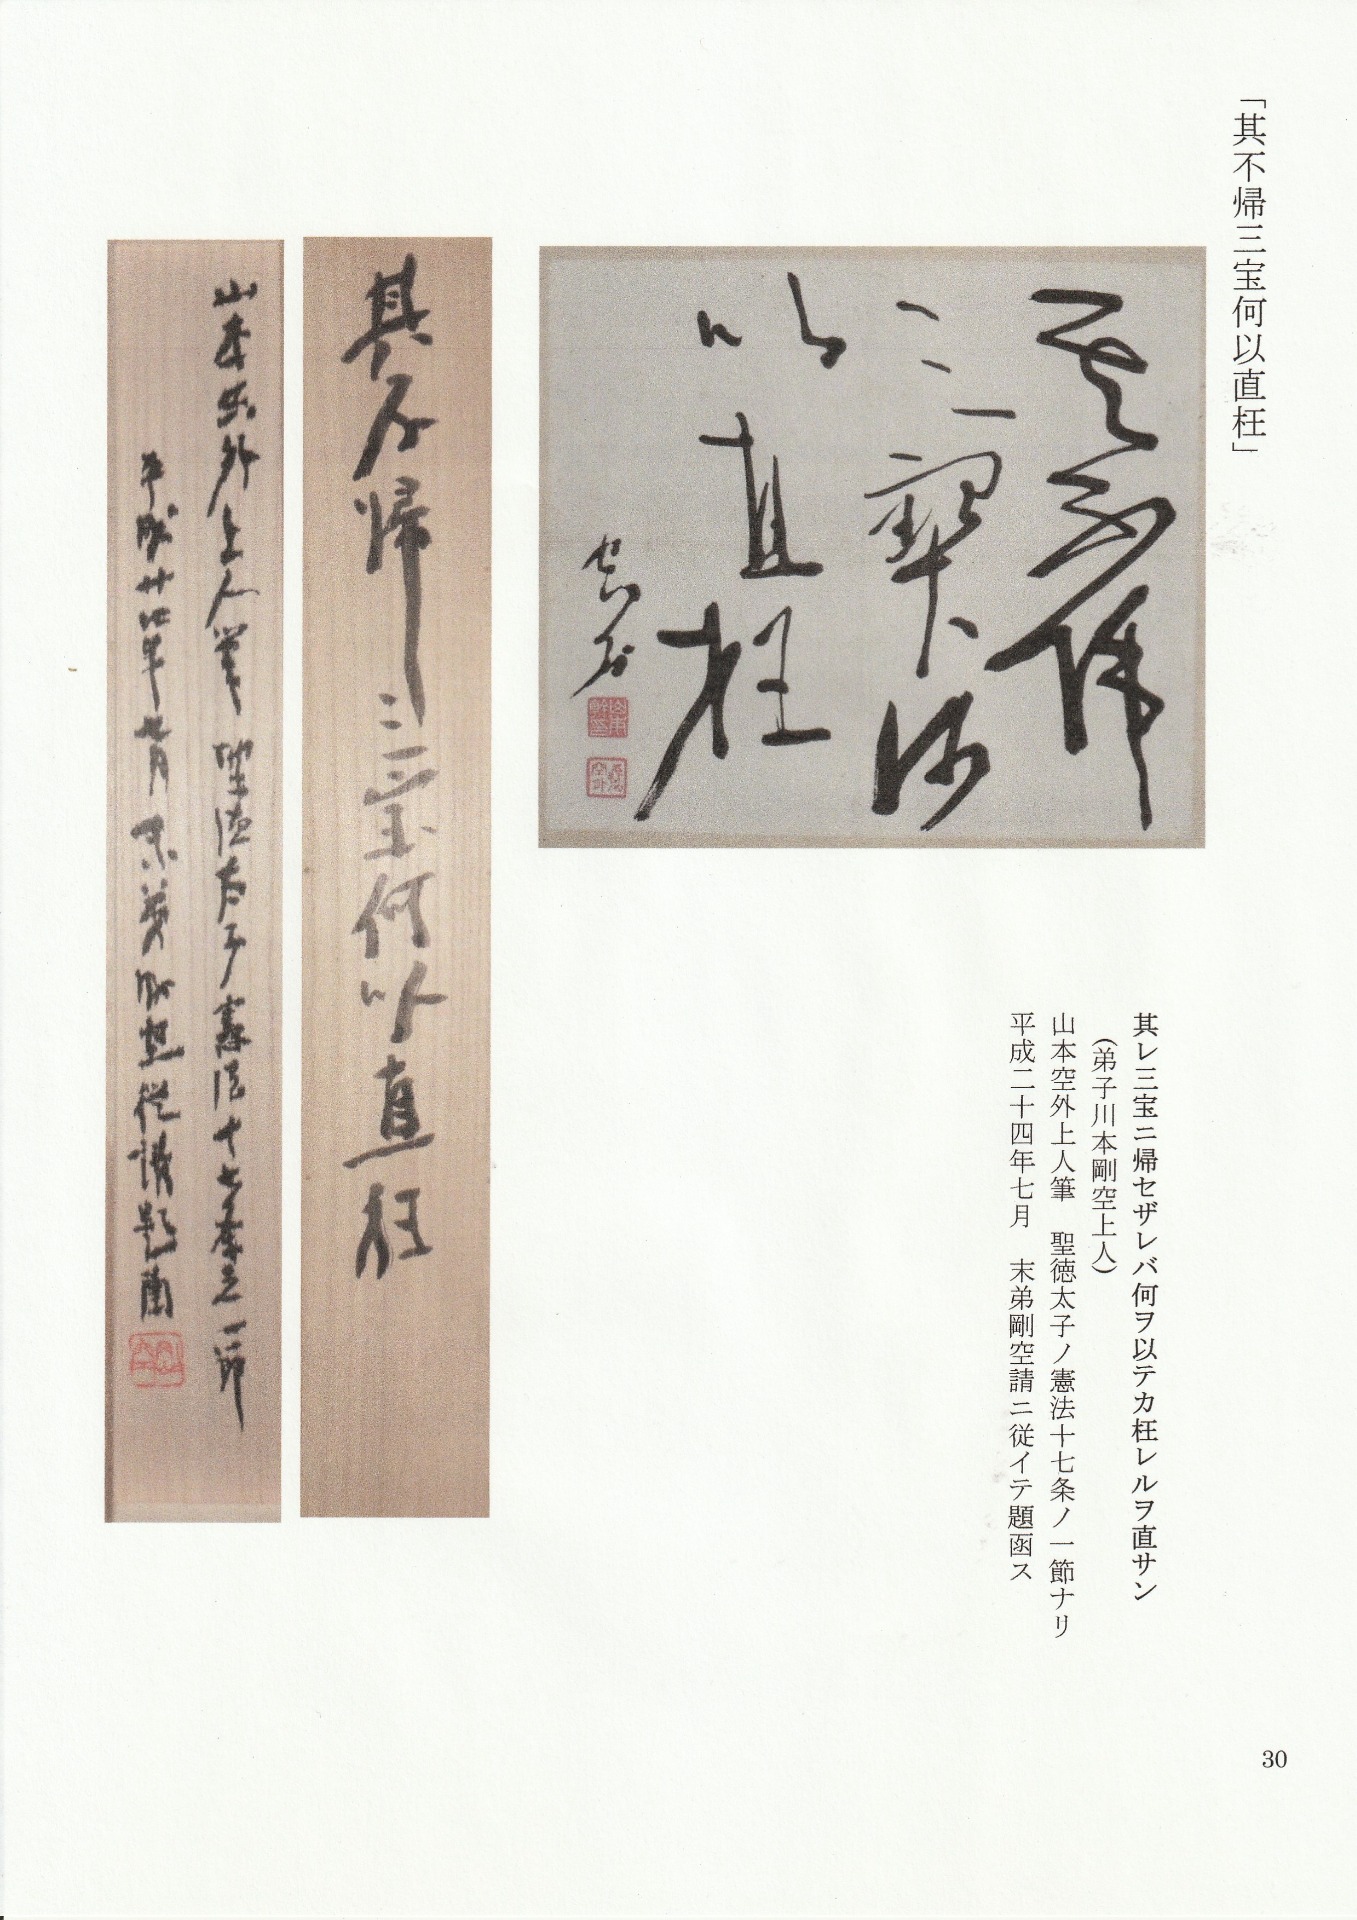 「其不帰三宝何以直枉」
其不帰
三寶何
以直枉
空外
其不帰三宝何以直枉
山本空外上人筆 聖徳太子ノ憲法十七条之一節
平成廿四年七月 末弟剛空従請題凾
其レ三宝ニ帰セザレバ何ヲ以テカ枉レルヲ直サン
（弟子川本剛空上人）
山本空外上人筆　聖徳太子ノ憲法十七条ノ一節ナリ
平成二十四年七月　末弟剛空請ニ従イテ題凾ス
30